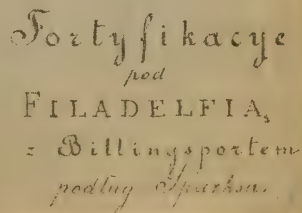 Fortyfikacye
pod
FILADELFIA,
z Billingsportem
podług Sparksa.